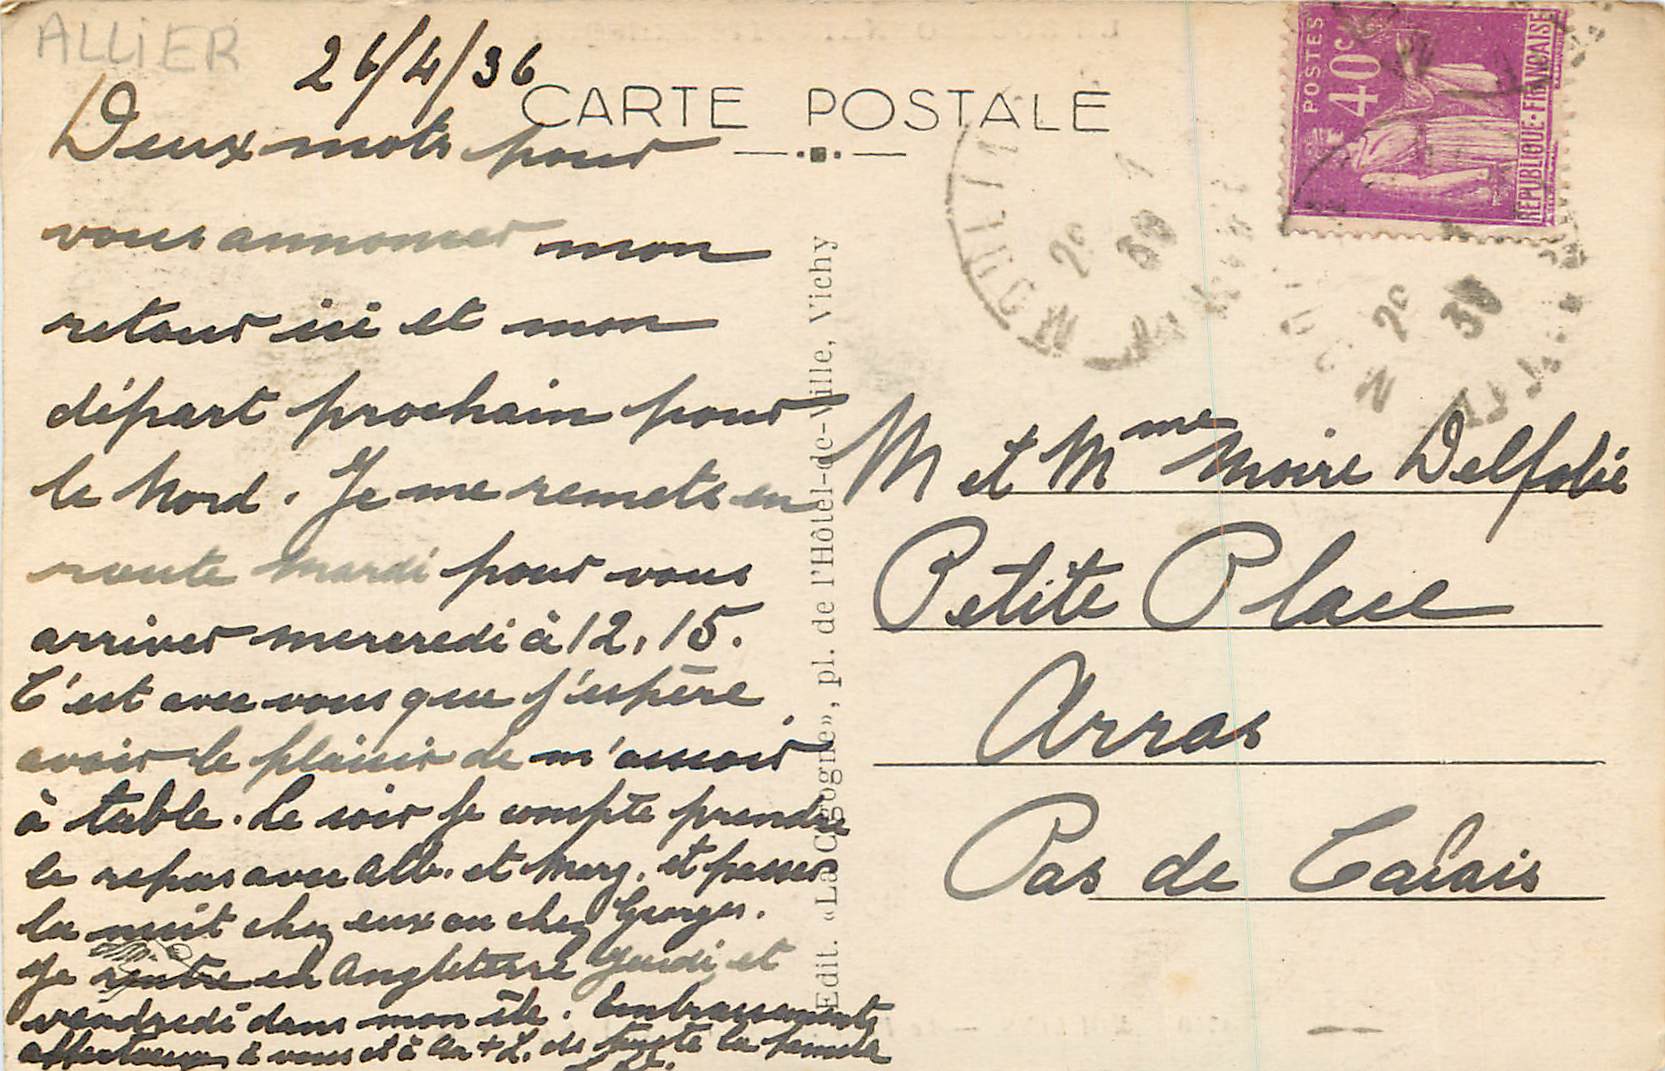 ALLIER
26/4/36
CARTE POSTALE
Deux mots pour
vous annoncer mon
retour ici et mon
départ prochain pour
le Nord. Je me remets en
route Mardi pour vous
arriver mercredi à 12,15.
C'est avec vous que j'espère
avoir le plaisir de m'asseoir
à table. Le soir je compte prendre
le repas avec Alb. et Marg. et passer
la nuit chez eux ou chez Georges.
Je rentre en Angleterre Jeudi et
vendredi dans mon île. Embrassements
affectueux à vous et à de toute la famille
Edit. «La Cigogne», pl. de l'Hôtel-de-Ville, Vichy
POSTES
40c
REPUBLIQUE-FRANÇAISE
M et Mme Moire Delfolie
Petite Place
Arras
Pas de Calais